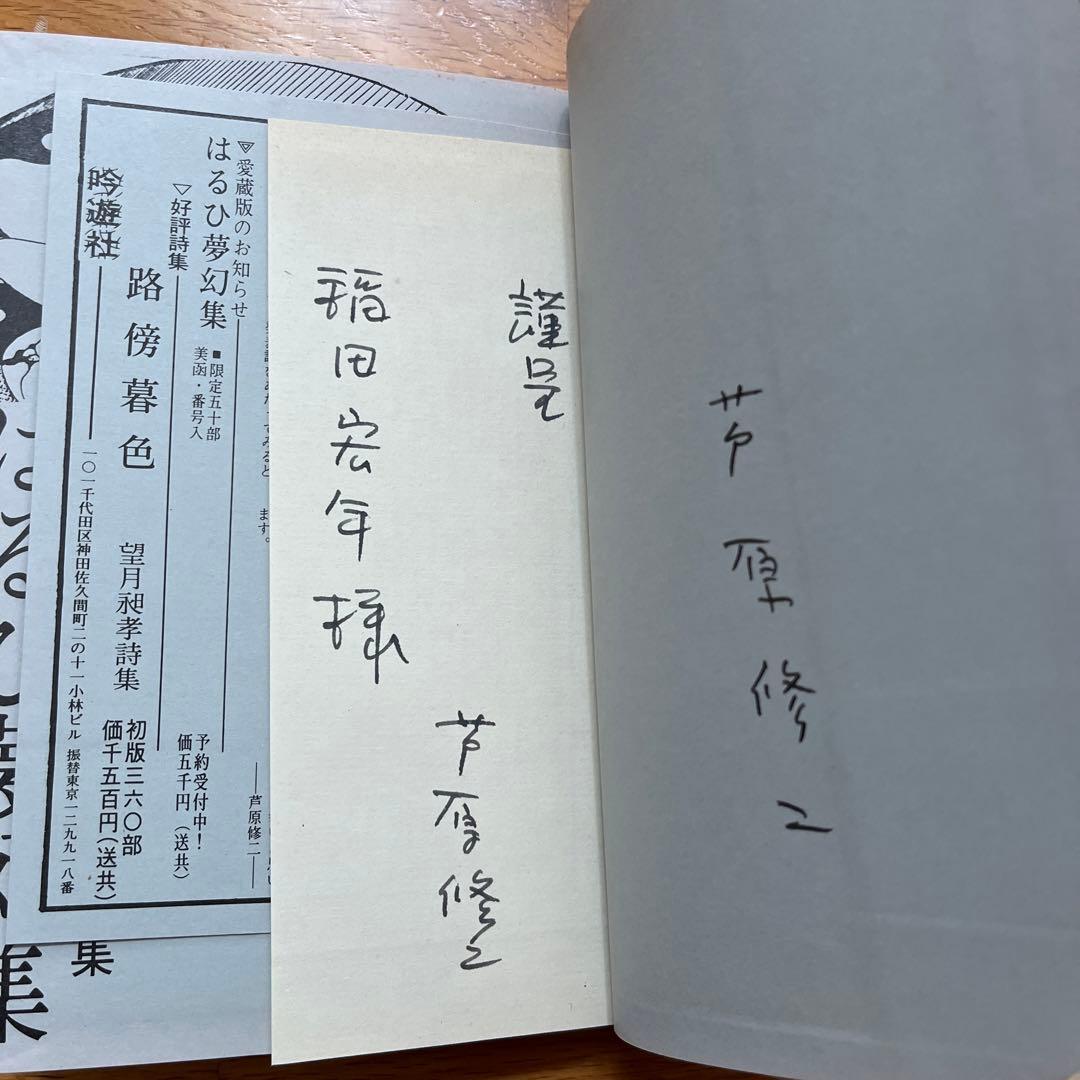 芦原修二
謹呈
稲田宏年様
芦原修二
▽愛蔵版のお知らせ
はるひ夢幻集
■限定五十部
美函・番号入
予約受付中!
価五千円(送共)
▽好評詩集
路傍暮色
望月昶孝詩集
初版三六〇部
価千五百円(送共)
吟遊社
一〇一千代田区神田佐久間町二の十一小林ビル 振替東京一二九九一八番
てみると
ます。
―芦原修二―
集
集